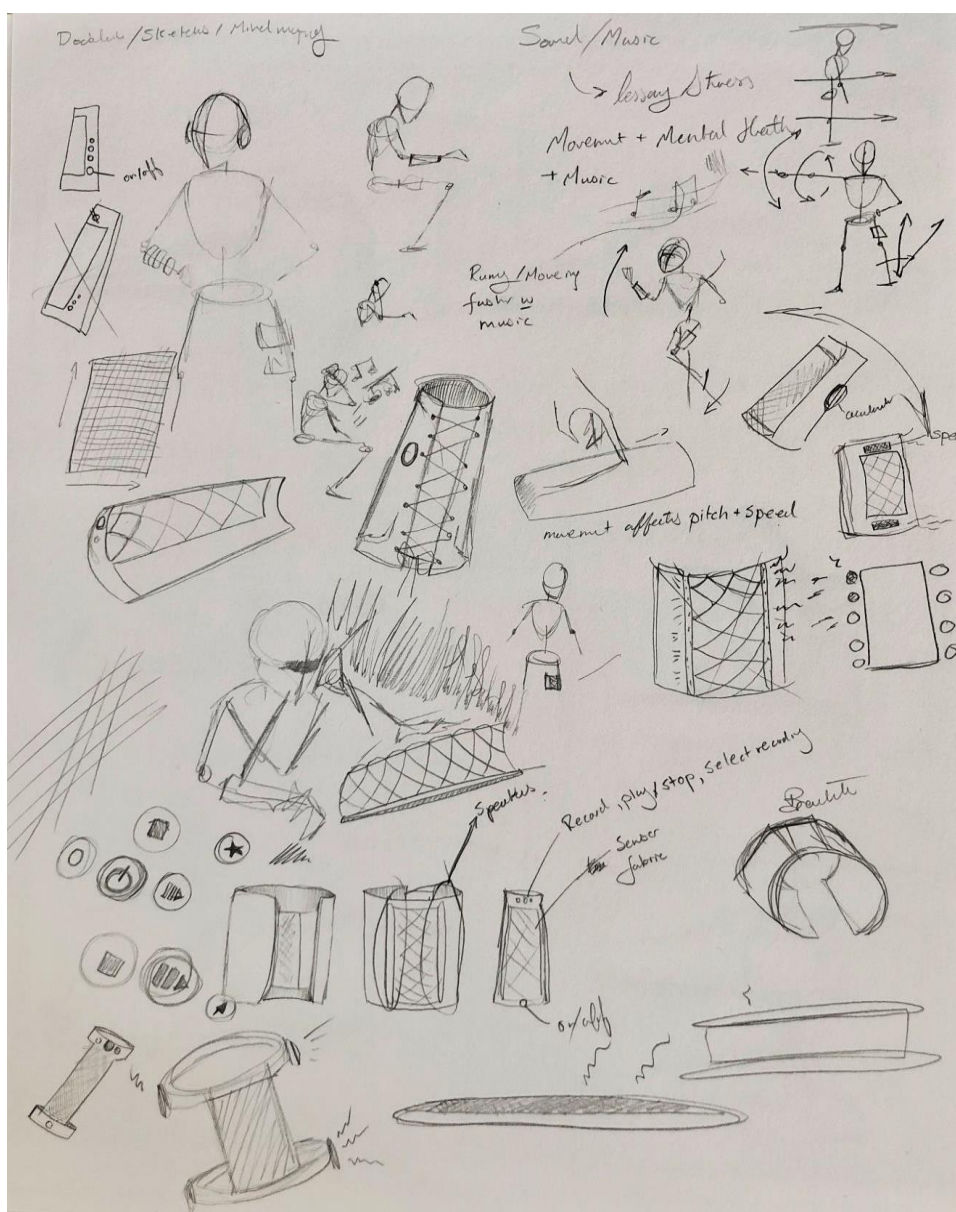 Doodles/Sketches/Mindmapping
Sound/Music
lessens Stress
Movement + Mental Health
+ Music
on/off
Running/Moving
faster w
music
movement affects pitch + speed
Speakers
Record, play/stop, select recording
Sensor
fabric
Bracelet
on/off